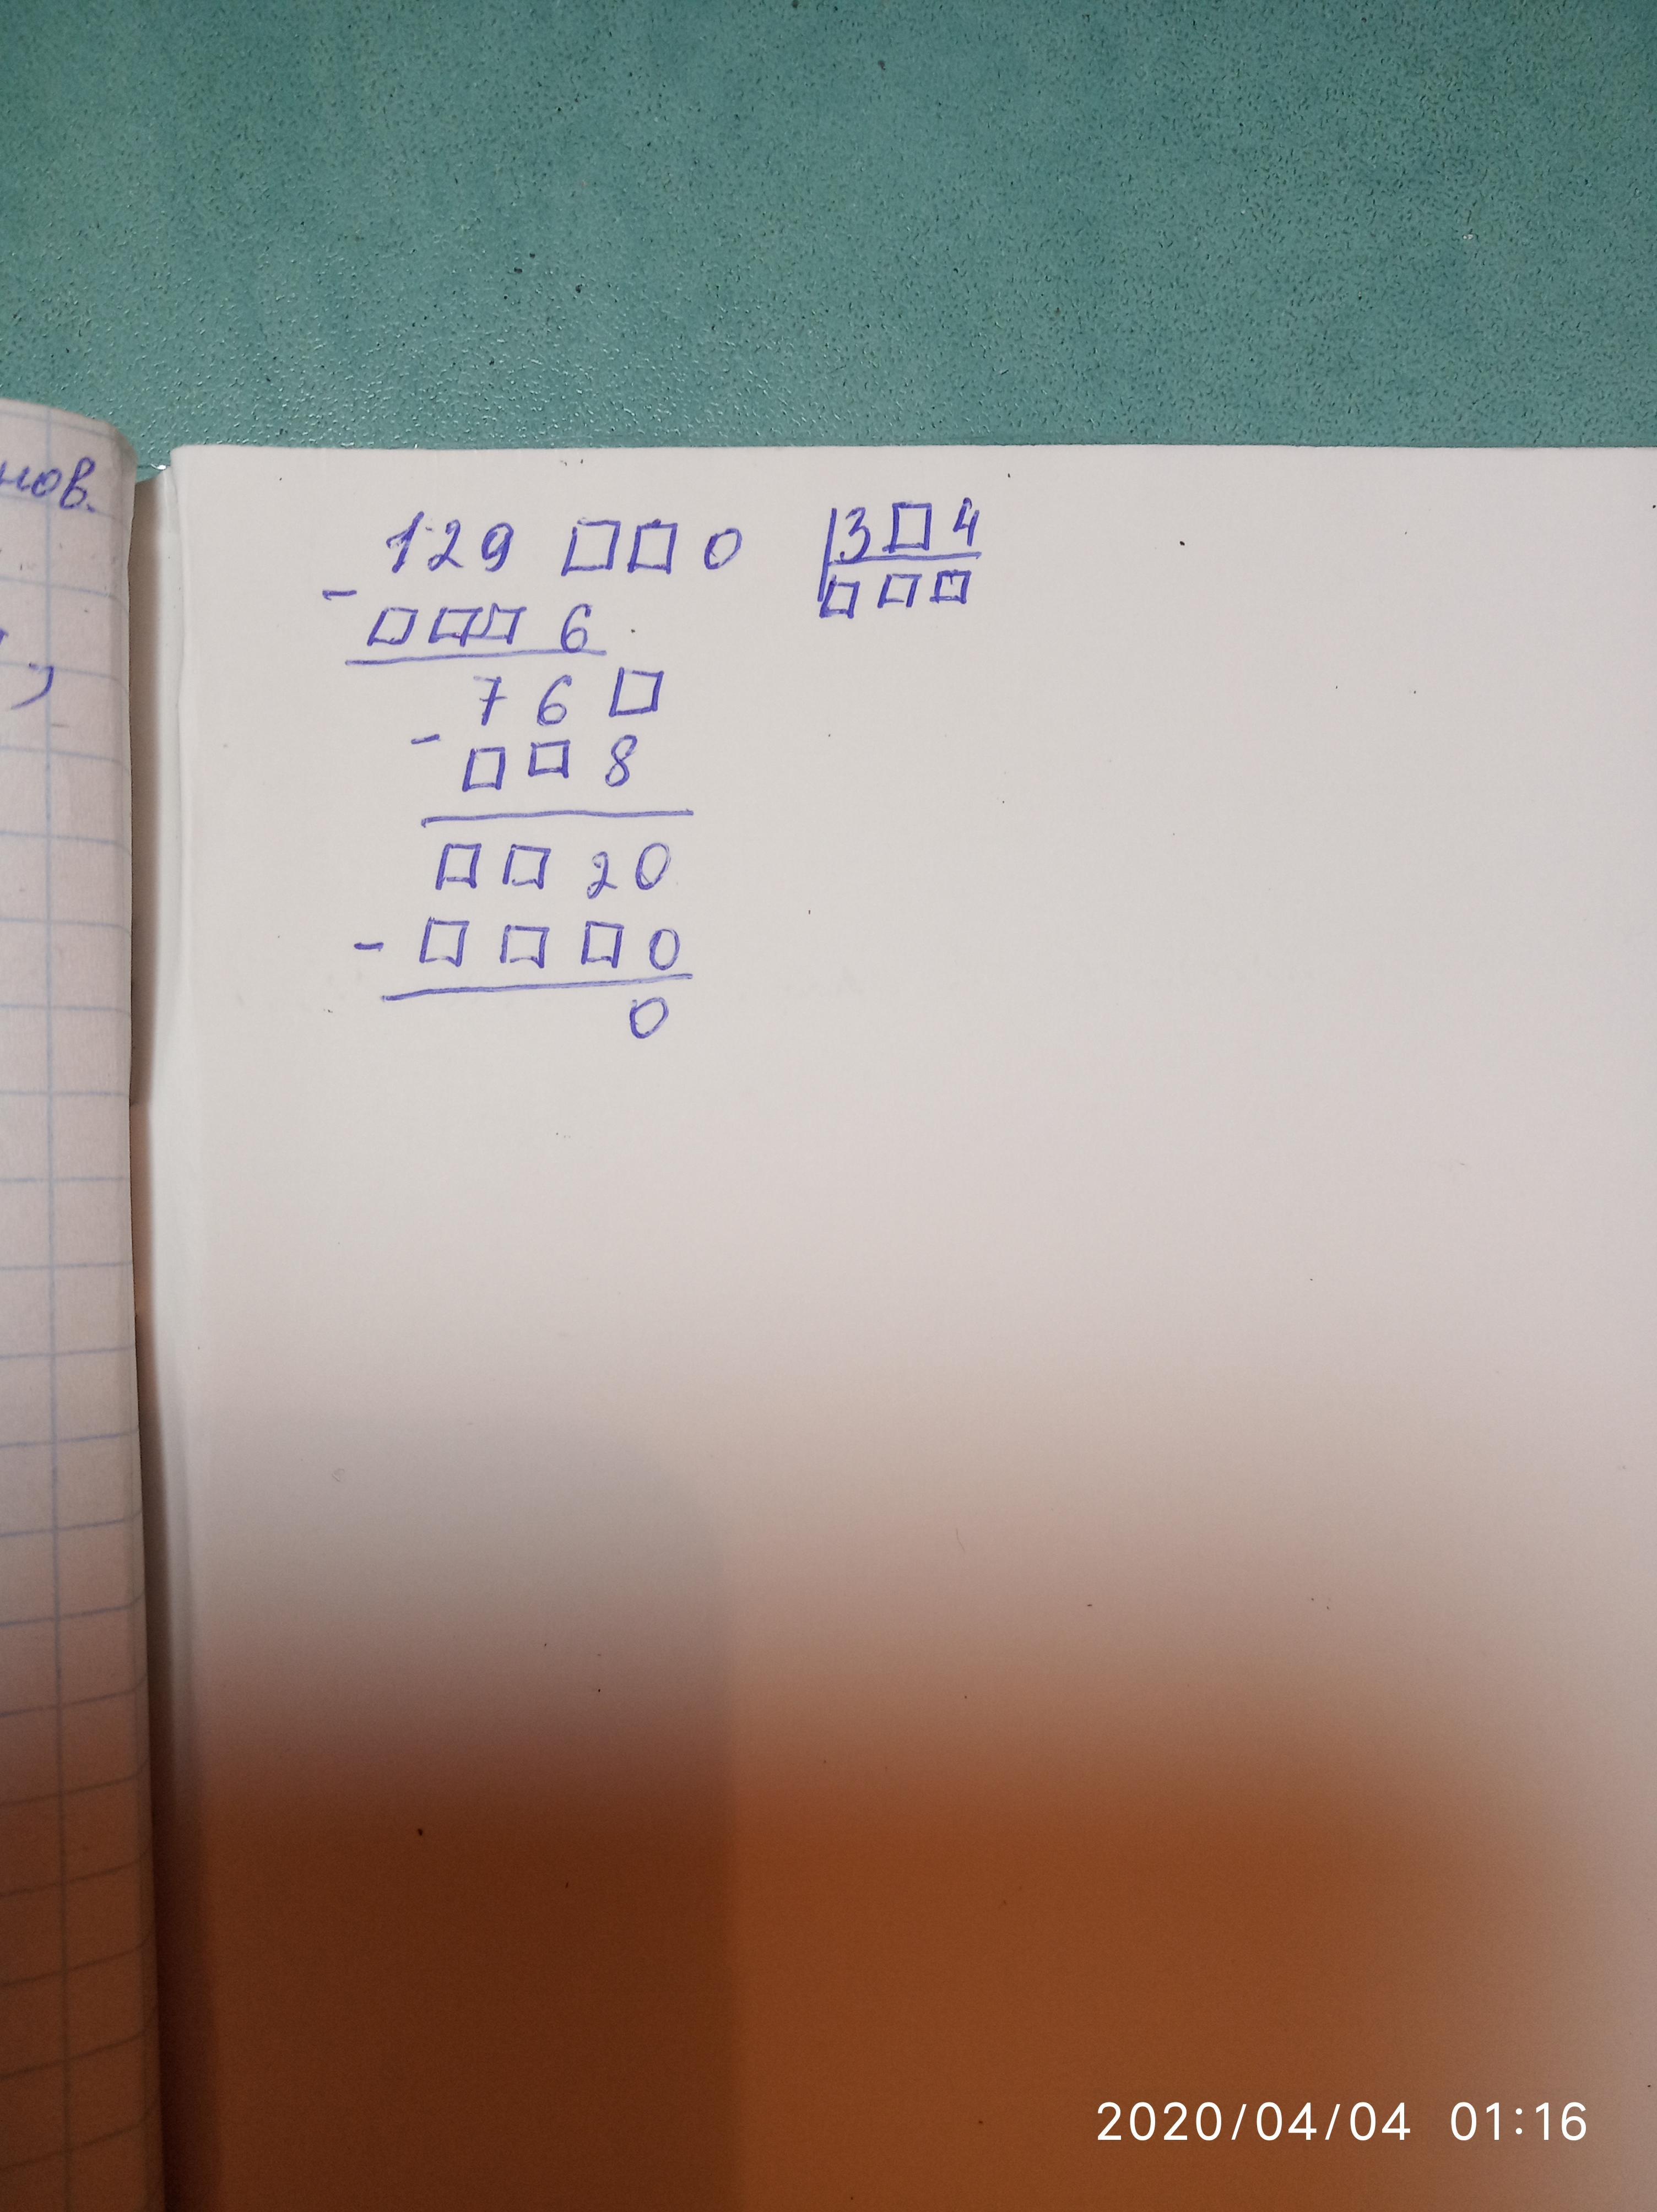 нов.
129 □□0 3□4
- □□□6 □□□
76□
- □□8
□□20
- □□□0
0
2020/04/04 01:16